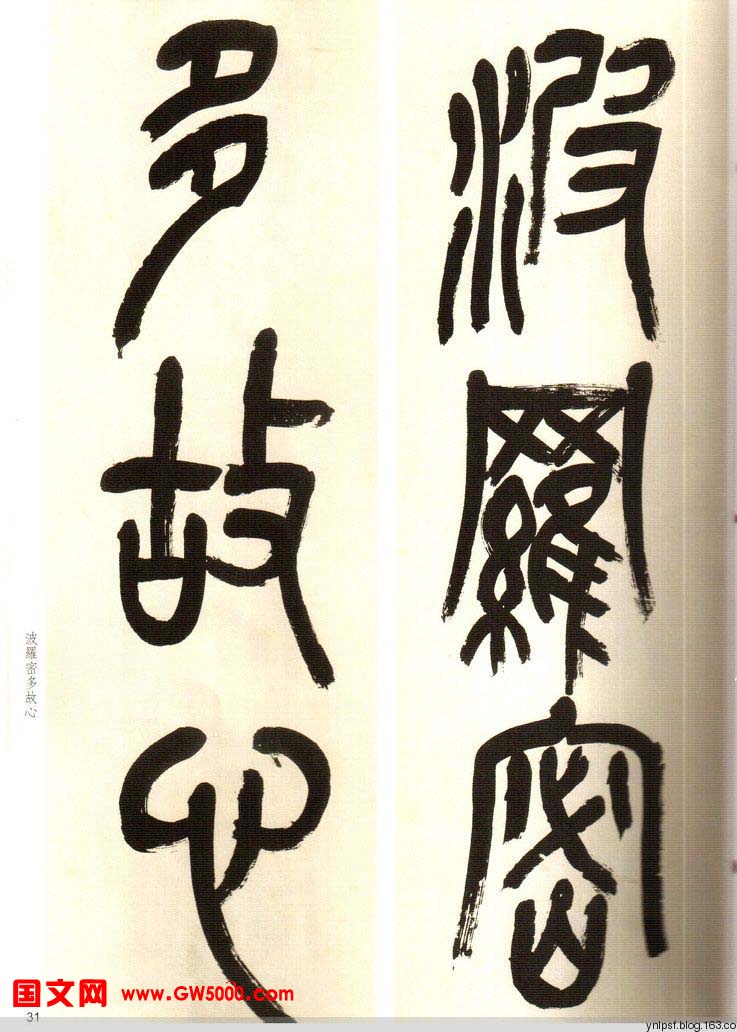 波羅密
多故心
波羅密多故心
国文网 www.GW5000.com
31
ynlpsf.blog.163.co